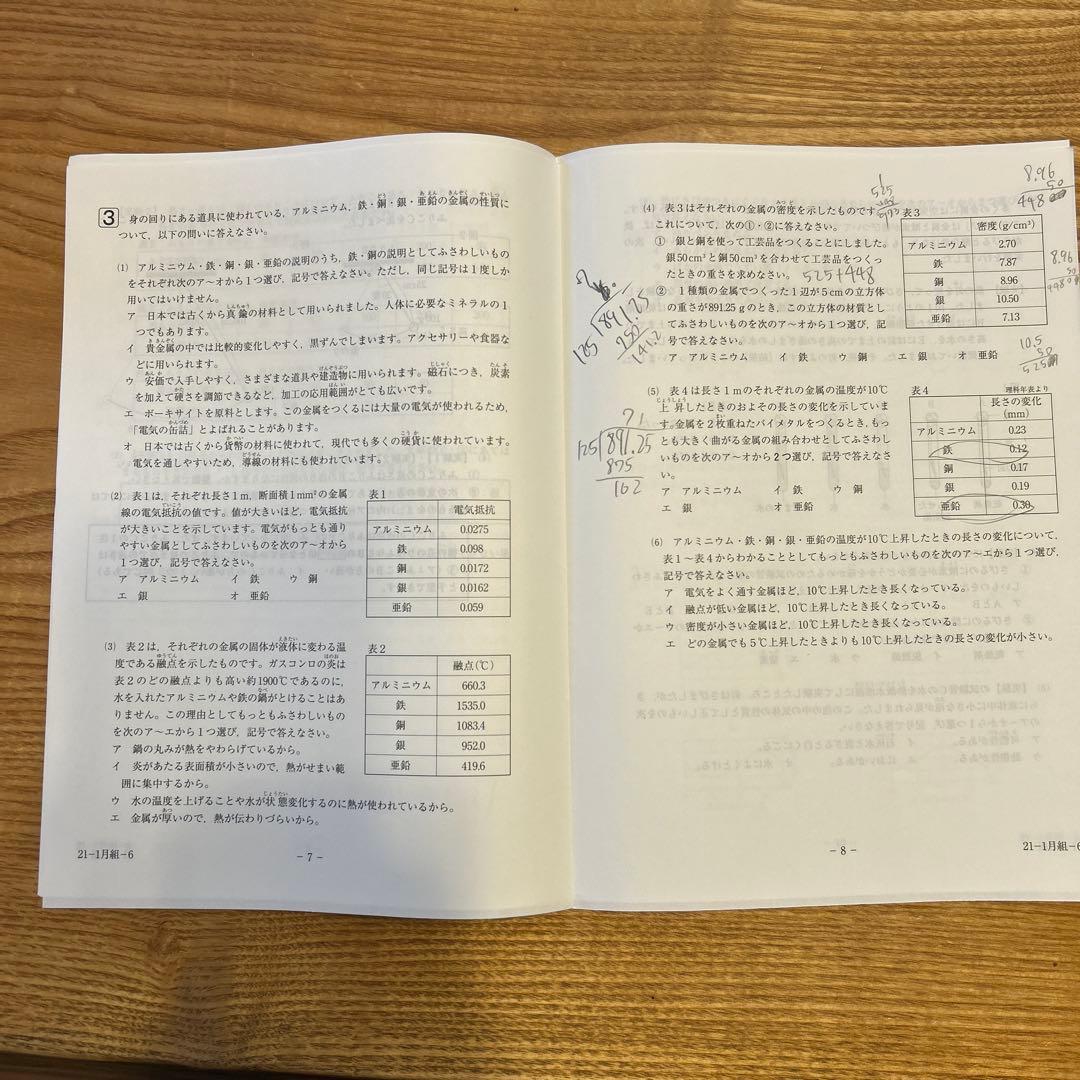 3 身の回りにある道具に使われている,アルミニウム,鉄・銅・銀・亜鉛の金属の性質に
ついて,以下の問いに答えなさい。
(1) アルミニウム・鉄・銅・銀・亜鉛の説明のうち,鉄・銅の説明としてふさわしいもの
をそれぞれ次のア〜オから1つ選び,記号で答えなさい。ただし,同じ記号は1度しか
用いてはいけません。
ア 日本では古くから真鍮の材料として用いられました。人体に必要なミネラルの1
つでもあります。
イ 貴金属の中では比較的変化しやすく,黒ずんでしまいます。アクセサリーや食器な
どに用いられます。
ウ 安価で入手しやすく,さまざまな道具や建造物に用いられます。磁石につき,炭素
を加えて硬さを調節できるなど,加工の応用範囲がとても広いです。
エ ボーキサイトを原料とします。この金属をつくるには大量の電気が使われるため,
「電気の缶詰」とよばれることがあります。
オ 日本では古くから貨幣の材料に使われて,現代でも多くの硬貨に使われています。
電気を通しやすいため,導線の材料にも使われています。
(2) 表1は,それぞれ長さ1m,断面積1mm²の金属
線の電気抵抗の値です。値が大きいほど,電気抵抗
が大きいことを示しています。電気がもっとも通り
やすい金属としてふさわしいものを次のア〜オから
1つ選び,記号で答えなさい。
ア アルミニウム イ 鉄 ウ 銅
エ 銀 オ 亜鉛
表1
電気抵抗
アルミニウム 0.0275
鉄 0.098
銅 0.0172
銀 0.0162
亜鉛 0.059
(3) 表2は,それぞれの金属の固体が液体に変わる温
度である融点を示したものです。ガスコンロの炎は
表2のどの融点よりも高い約1900℃であるのに,
水を入れたアルミニウムや鉄の鍋がとけることはあ
りません。この理由としてもっともふさわしいもの
を次のア〜エから1つ選び,記号で答えなさい。
ア 鍋の丸みが熱をやわらげているから。
イ 炎があたる表面積が小さいので,熱がせまい範
囲に集中するから。
ウ 水の温度を上げることや水が状態変化するのに熱が使われているから。
エ 金属が厚いので,熱が伝わりづらいから。
表2
融点(℃)
アルミニウム 660.3
鉄 1535.0
銅 1083.4
銀 952.0
亜鉛 419.6
21-1月組-6
- 7 -
(4) 表3はそれぞれの金属の密度を示したものです。
これについて,次の①・②に答えなさい。
① 銀と銅を使って工芸品をつくることにしました。
銀50cm³と銅50cm³を合わせて工芸品をつくっ
たときの重さを求めなさい。 525+448
② 1種類の金属でつくった1辺が5cmの立方体
の重さが891.25gのとき,この立方体の材質とし
てふさわしいものを次のア〜オから1つ選び,記
号で答えなさい。
ア アルミニウム イ 鉄 ウ 銅 エ 銀 オ 亜鉛
表3
密度(g/cm³)
アルミニウム 2.70
鉄 7.87
銅 8.96
銀 10.50
亜鉛 7.13
525
8.96
50
448
8.96
50
10.5
50
525
125 891.25
(5) 表4は長さ1mのそれぞれの金属の温度が10℃
上昇したときのおよその長さの変化を示していま
す。金属を2枚重ねたバイメタルをつくるとき,もっ
とも大きく曲がる金属の組み合わせとしてふさわ
しいものを次のア〜オから2つ選び,記号で答えなさ
い。
ア アルミニウム イ 鉄 ウ 銅
エ 銀 オ 亜鉛
71
125 891.25
875
162
表4 理科年表より
長さの変化
(mm)
アルミニウム 0.23
鉄 0.12
銅 0.17
銀 0.19
亜鉛 0.30
(6) アルミニウム・鉄・銅・銀・亜鉛の温度が10℃上昇したときの長さの変化について,
表1〜表4からわかることとしてもっともふさわしいものを次のア〜エから1つ選び,
記号で答えなさい。
ア 電気をよく通す金属ほど,10℃上昇したとき長くなっている。
イ 融点が低い金属ほど,10℃上昇したとき長くなっている。
ウ 密度が小さい金属ほど,10℃上昇したとき長くなっている。
エ どの金属でも5℃上昇したときよりも10℃上昇したときの長さの変化が小さい。
- 8 -
21-1月組-6